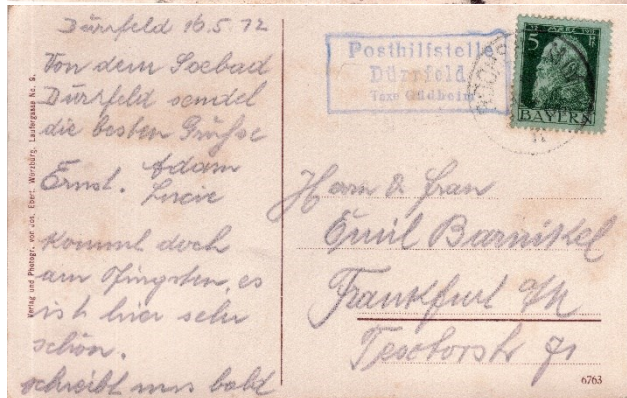 Dürrfeld 16.5.12
Von dem Soebad
Dürrfeld sendet
die besten Grüße
Ernst. Adam
Lucie
Kommt doch
am Pfingsten, es
ist hier sehr
schön.
schreibt uns bald
Verlag und Photogr. von Jos. Ebert, Würzburg, Laufergasse No. 9.
Posthilfstelle
Dürrfeld
Taxe
5
BAYERN
Herrn & Frau
Emil Barnikel
Frankfurt a/M
Textorstr 71
6763